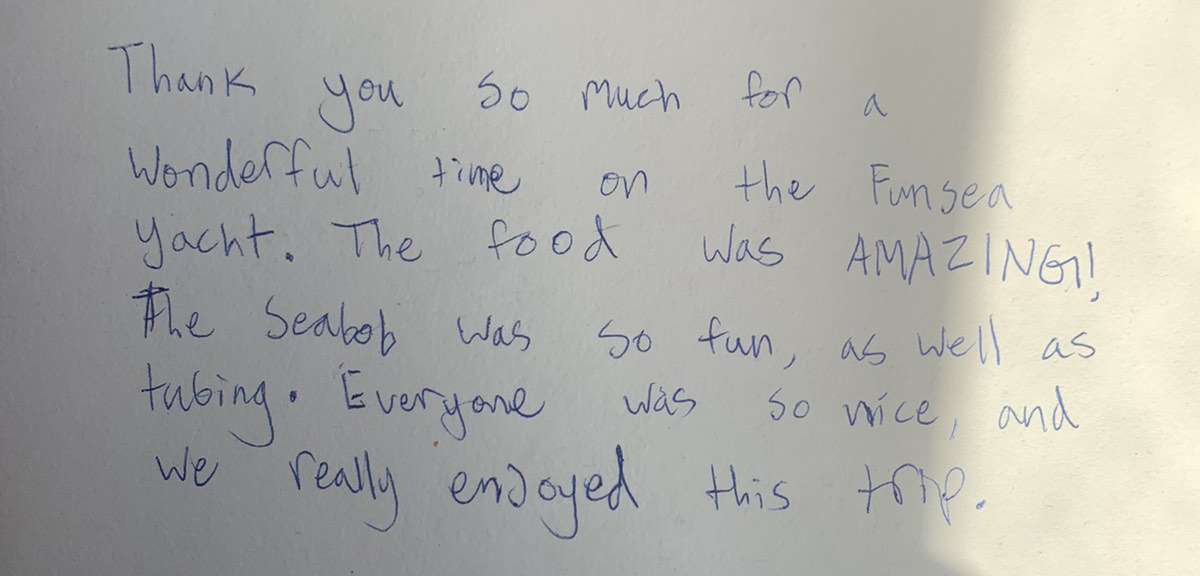 Thank you so much for a
Wonderful time on the Funsea
yacht. The food was AMAZING!
The Seabob was so fun, as well as
tubing. Everyone was so nice, and
we really enjoyed this trip.